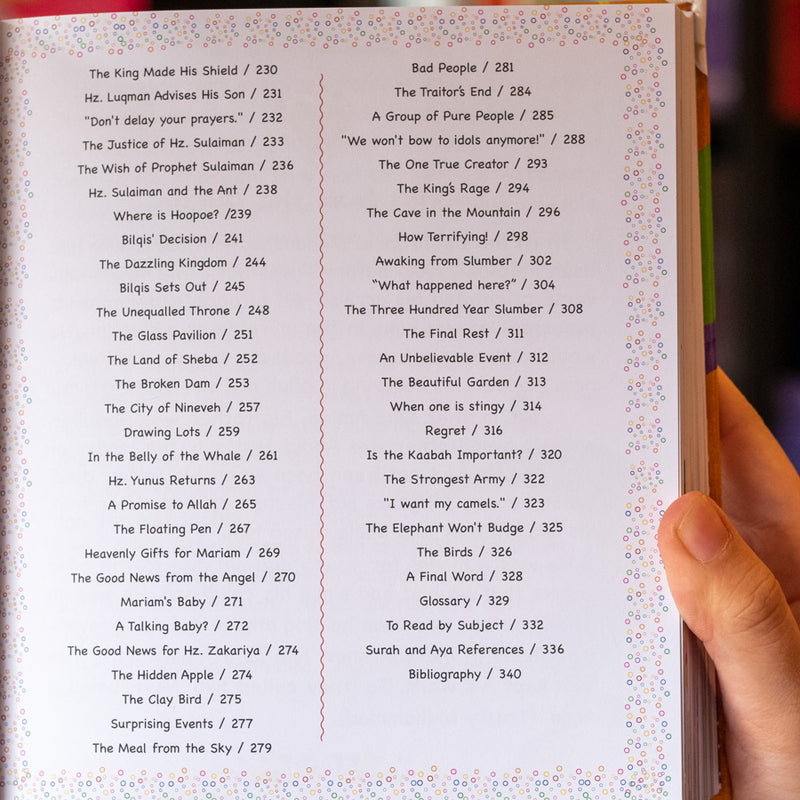 The King Made His Shield / 230
Hz. Luqman Advises His Son / 231
"Don't delay your prayers." / 232
The Justice of Hz. Sulaiman / 233
The Wish of Prophet Sulaiman / 236
Hz. Sulaiman and the Ant / 238
Where is Hoopoe? /239
Bilqis' Decision / 241
The Dazzling Kingdom / 244
Bilqis Sets Out / 245
The Unequalled Throne / 248
The Glass Pavilion / 251
The Land of Sheba / 252
The Broken Dam / 253
The City of Nineveh / 257
Drawing Lots / 259
In the Belly of the Whale / 261
Hz. Yunus Returns / 263
A Promise to Allah / 265
The Floating Pen / 267
Heavenly Gifts for Mariam / 269
The Good News from the Angel / 270
Mariam's Baby / 271
A Talking Baby? / 272
The Good News for Hz. Zakariya / 274
The Hidden Apple / 274
The Clay Bird / 275
Surprising Events / 277
The Meal from the Sky / 279
Bad People / 281
The Traitor's End / 284
A Group of Pure People / 285
"We won't bow to idols anymore!" / 288
The One True Creator / 293
The King's Rage / 294
The Cave in the Mountain / 296
How Terrifying! / 298
Awaking from Slumber / 302
"What happened here?" / 304
The Three Hundred Year Slumber / 308
The Final Rest / 311
An Unbelievable Event / 312
The Beautiful Garden / 313
When one is stingy / 314
Regret / 316
Is the Kaabah Important? / 320
The Strongest Army / 322
"I want my camels." / 323
The Elephant Won't Budge / 325
The Birds / 326
A Final Word / 328
Glossary / 329
To Read by Subject / 332
Surah and Aya References / 336
Bibliography / 340